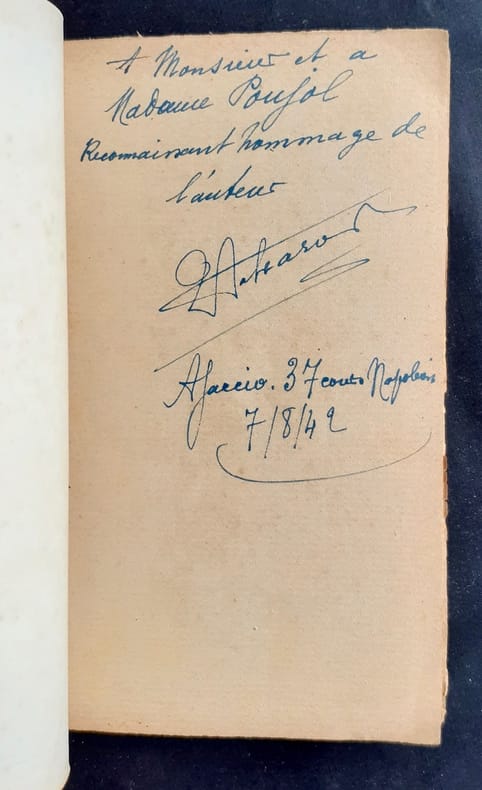 A Monsieur et a
Madame Poujol
Reconnaissant hommage de
l'auteur
Ajaccio. 37 cours Napoléon
7/8/42